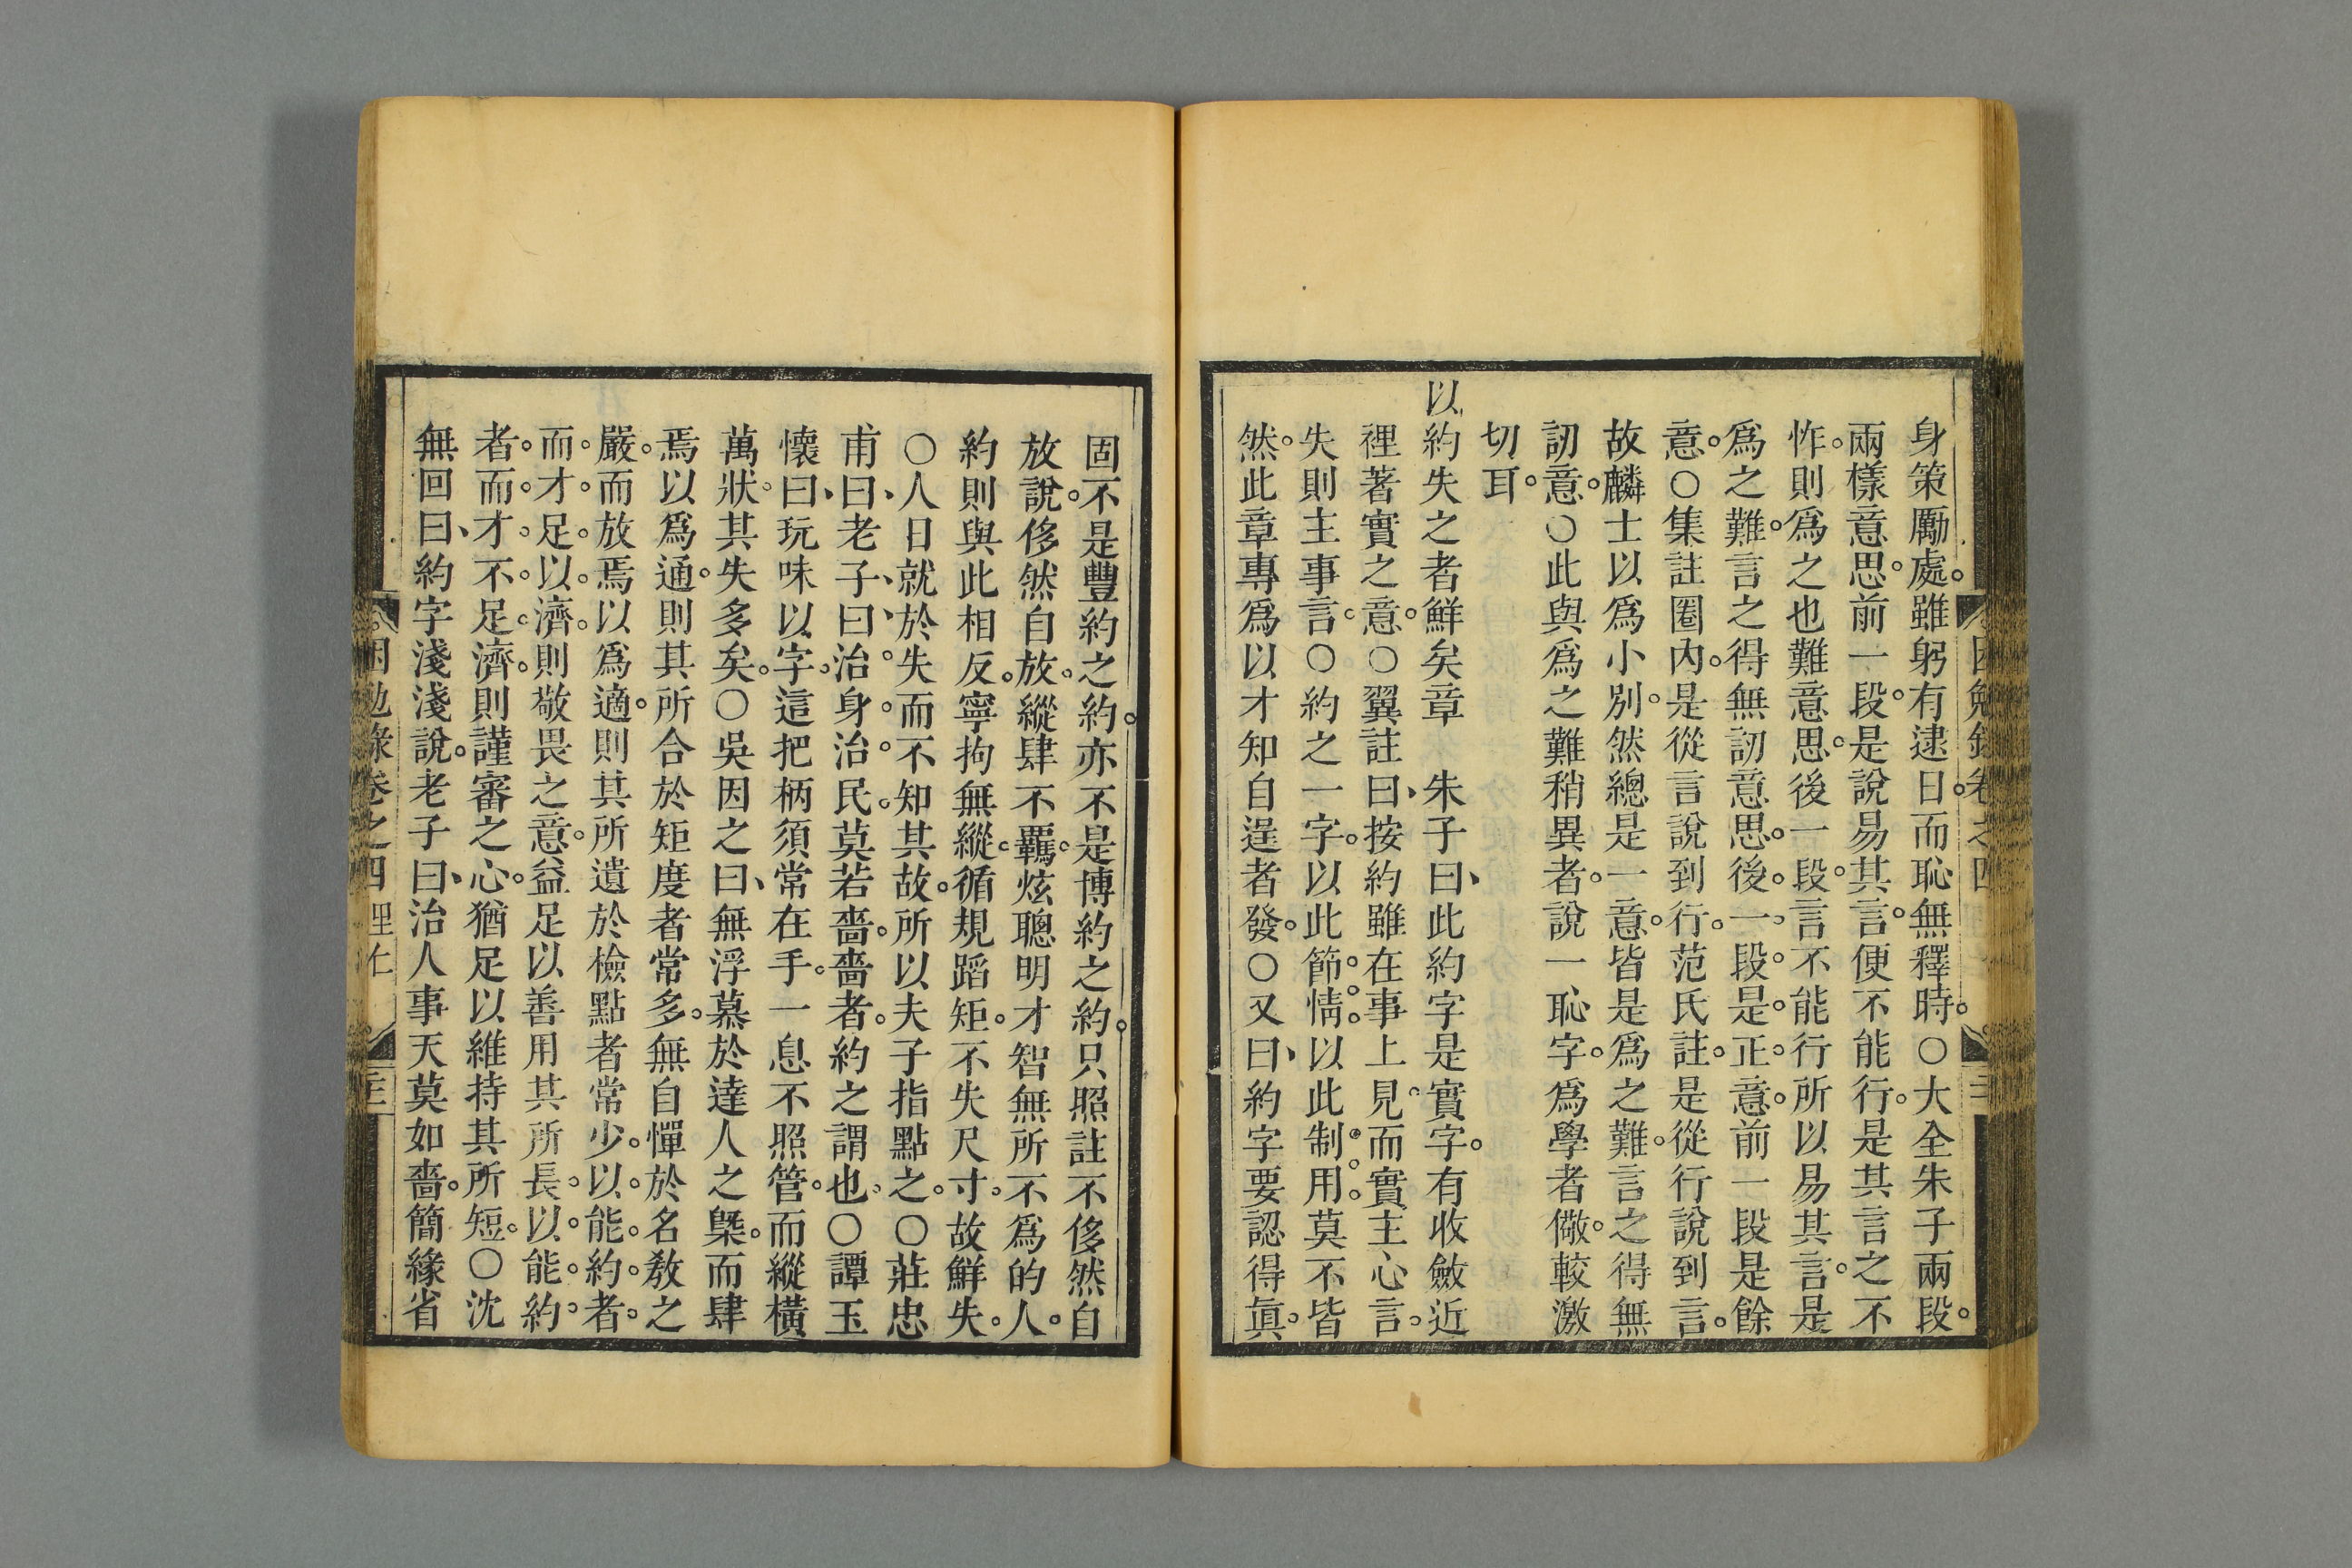 身策厲處。雖躬有逮日。而恥無釋時。○大全朱子兩段。
兩樣意思。前一段。是說易其言。便不能行。是其言之不
怍。則爲之也難意思。後一段。言不能行所以易其言。是
爲之難。言之得無訒意思。後。一。段。是。正。意。前一段是餘
意。○集註圈內。是從言說到行。范氏註。是從行說到言。
故麟士以爲小別。然總是一意。皆是爲之難。言之得無
訒意。○此與爲之難稍異者。說一恥字。爲學者儆。較激
切耳。
以約失之者鮮矣章　朱子曰、此約字是實字。有收斂近
裡著實之意。○翼註曰、按約雖在事上見。而實主心言。
失則主事言。○約之一字。以此節。情。以此制。用。莫不皆
然。此章專爲以才知自逞者發。○又曰、約字要認得眞。
固不是豐約之約。亦不是博約之約。只照註不侈然自
放說。侈然自放。縱肆不羈。炫聰明才智無所不爲的人。
約則與此相反。寧拘無縱。循規蹈矩。不失尺寸。故鮮失。
○人日就於失而不知其故。所以夫子指點之。○莊忠
甫曰、老子曰、治。身。治。民。莫若嗇。嗇者。約之謂也。○譚玉
懷曰、玩味以字。這把柄須常在手。一息不照管。而縱橫
萬狀。其失多矣。○吳因之曰、無浮慕於達人之槩。而肆
焉以爲通。則其所合於矩度者常多。無自憚於名教之
嚴。而放焉以爲適。則其所遺於檢點者常少。以。能。約。者。
而。才。足。以。濟。則敬畏之意。益足以善用其所長。以。能。約
者。而。才。不。足。濟。則謹審之心。猶足以維持其所短。○沈
無回曰、約字淺淺說。老子曰、治人事天莫如嗇。簡緣省
困勉錄卷之四 里仁